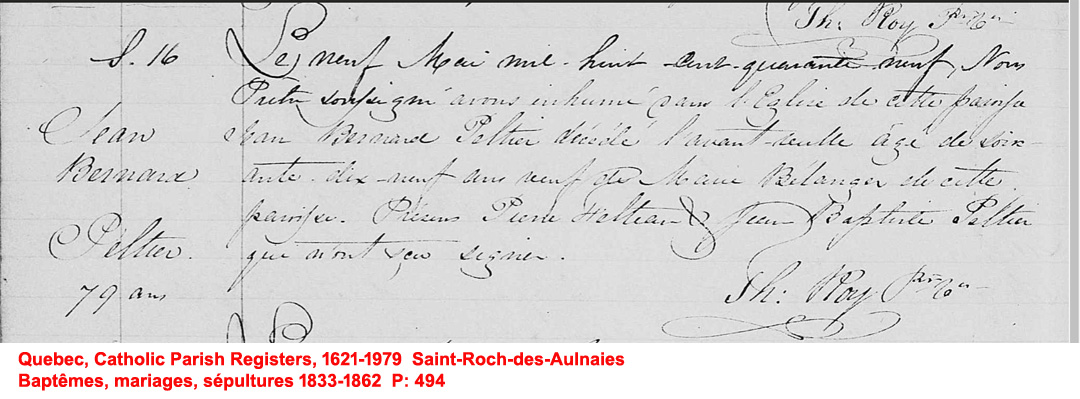 Th: Roy Ptre
S. 16
Le neuf Mai mil-huit-cent-quarante-neuf, Nous
Prêtre soussigné avons inhumé dans l'Eglise de cette paroisse
Jean
Jean Bernard Peltier décédé l'avant-veille âgé de soix-
Bernard
ante-dix-neuf ans veuf de Marie Bélanger de cette
paroisse. Présens Pierre Pelletier & Jean Baptiste Peltier
Peltier.
que n'ont sçu signer.
79 ans
Th: Roy Ptre
Quebec, Catholic Parish Registers, 1621-1979 Saint-Roch-des-Aulnaies
Baptêmes, mariages, sépultures 1833-1862 P: 494